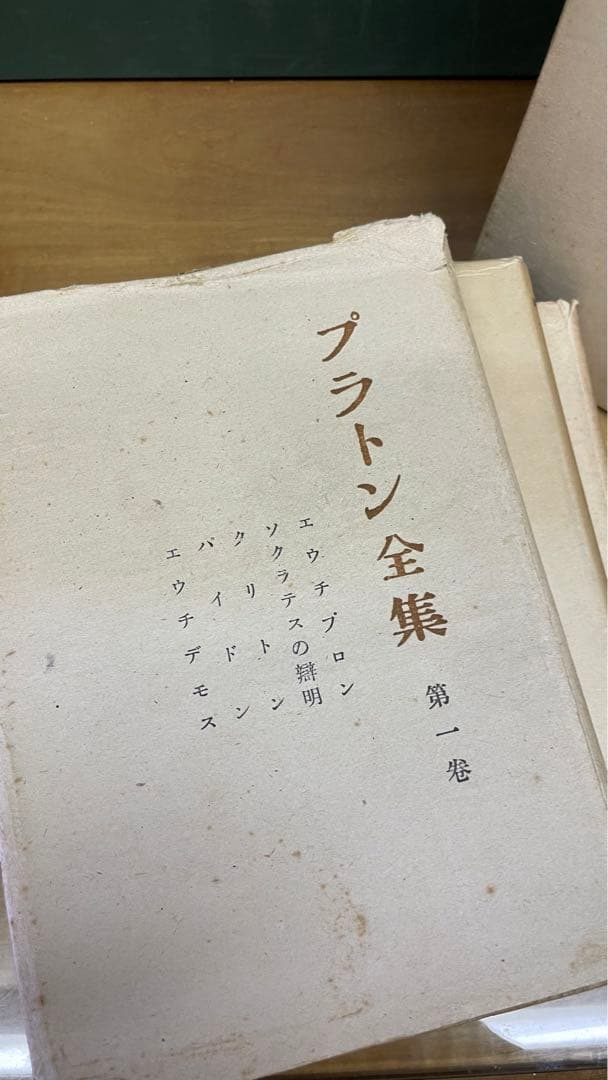 プラトン全集
第一卷
エウチプロン
ソクラテスの辯明
クリトン
パイドン
エウチデモス